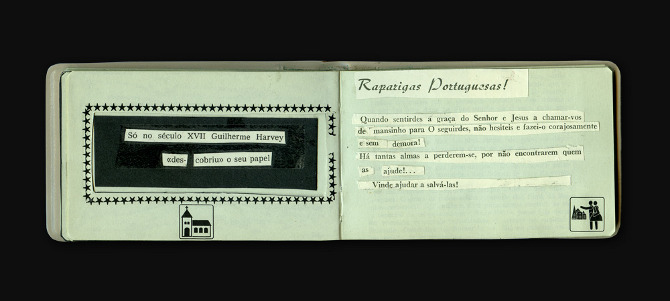 Só no século XVII Guilherme Harvey
«des- cobriu» o seu papel
Raparigas Portuguesas!
Quando sentirdes a graça do Senhor e Jesus a chamar-vos
de mansinho para O seguirdes, não hesiteis e fazei-o corajosamente
e sem demora!
Há tantas almas a perderem-se, por não encontrarem quem
as ajude!...
Vinde ajudar a salvá-las!